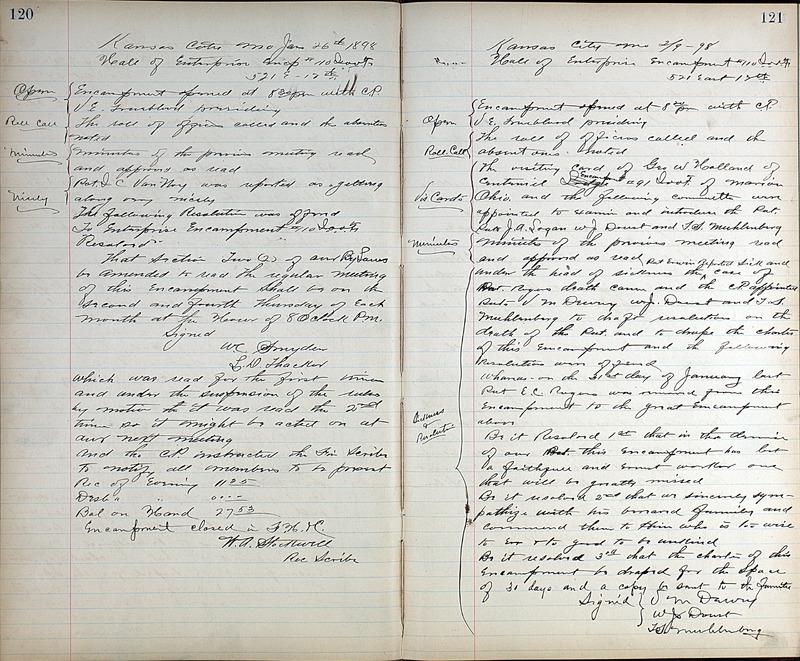 120
Kansas City Mo Jan 26th 1898
Hall of Enterprise Encp #10 IOOF
521 E - 12th
Open
Encampment opened at 8 30 pm with C.P.
V.E. presiding
Roll Call
The roll of officers called and the absentees
noted
Minutes
Minutes of the previous meeting read
and approved as read
Nicely
Pat. I C Van Noy was reported as getting
along very nicely
The following Resolution was offered
To Enterprise Encampment #10 IOOF
Resolved
That Section Two (2) of our By Laws
be amended to read the regular meeting
of this Encampment shall be on the
second and fourth Thursday of Each
month at the Hour of 8 O'clock P.M.
Signed
W C Snyder
L. D. Thacker
Which was read for the first time
and under the suspension of the rules
by motion it was read the 2nd
time so it might be acted on at
our next meeting
And the C.P. instructed the Fin Scribe
to notify all members to be present
Rec of Evening 11 25
Disb's "
Bal on Hand 27 53
Encampment closed in F.H.&C.
W. A. Stockwell
Rec Scribe
121
Kansas City Mo 2/9 - 98
Hall of Enterprise Encampment #10 IOOF
521 East 12th
Open
Encampment opened at 8 pm with C.P.
V.E. presiding
Roll Call
The roll of officers called and the
absent ones noted
Vis Cards
The visiting card of Geo W Holland of
Centennial Encamp # 91 IOOF of Marion
Ohio and the following committee were
appointed to examin and introduce the Pat.
Pats J.A. Logan W J Doust and F.S. Muhlenburg
Minutes
Minutes of the previous meeting read
and approved as read Pat Erwin reported sick and
under the head of sickness the case of
Pat Rogers death came and the C.P. appointed
Pats V M Dewey W.J. Doust and F.S.
Muhlenburg to draft resolutions on the
death of the Pat. and to drape the charter
of this Encampment and the following
resolutions were offered
Sickness & Resolution
Whereas on the 31st day of January last
Pat E.C. Rogers was removed from this
Encampment to the great Encampment
above
Be it Resolved 1st that in the demise
of our Pat this Encampment has lost
a faithful and ernest worker one
that will be greatly missed
Be it resolved 2nd that we sincerely sym-
pathize with his bereaved families and
commend them to Him who is to wise
to Err & to good to be unkind
Be it resolved 3rd that the charter of this
Encampment be draped for the space
of 30 days and a copy be sent to the families
Signed V M Dewey
W J Doust
F S Muhlenburg